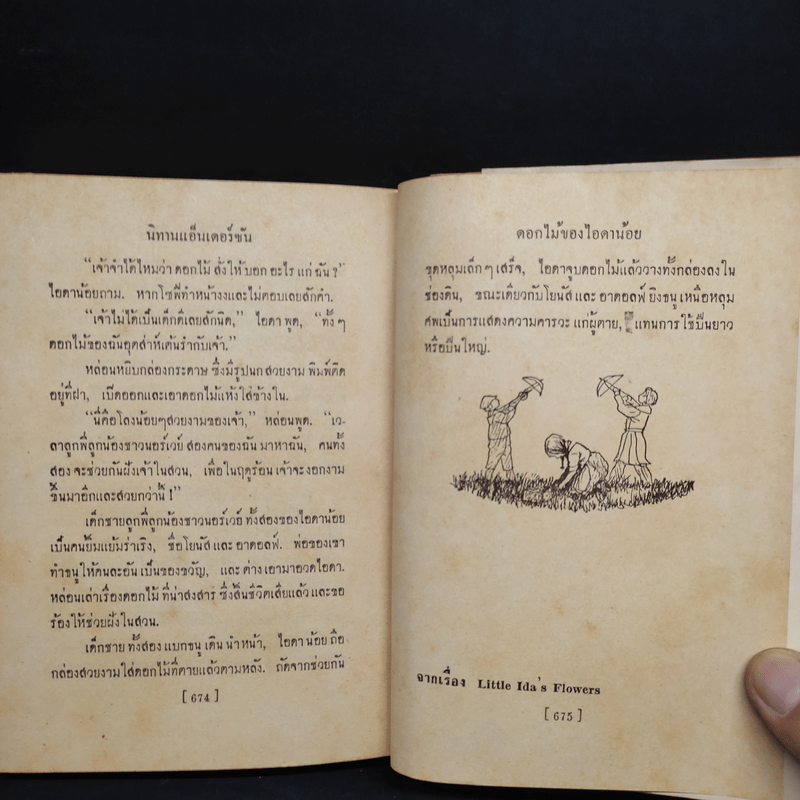 นิทานแอ็นเดอร์ซัน
“เจ้าจำได้ไหมว่า ดอกไม้ สั่งให้ บอก อะไร แก่ ฉัน ?”
ไอดาน้อยถาม. หากโซฟีทำหน้างงและไม่ตอบเลยสักคำ.
“เจ้าไม่ได้เป็นเด็กดีเลยสักนิด,” ไอดา พูด, “ทั้ง ๆ
ดอกไม้ของฉันอุตส่าห์เต้นรำกับเจ้า.”
หล่อนหยิบกล่องกระดาษ ซึ่งมีรูปนกสวยงาม พิมพ์ติด
อยู่ที่ฝา, เปิดออกและเอาดอกไม้แห้งใส่ข้างใน.
“นี่คือโลงน้อยๆสวยงามของเจ้า,” หล่อนพูด. “เว-
ลาลูกพี่ลูกน้องชาวนอร์เวย์ สองคนของฉัน มาหาฉัน, คนทั้ง
สอง จะช่วยกันฝังเจ้าในสวน, เพื่อในฤดูร้อน เจ้าจะงอกงาม
ขึ้นมาอีกและสวยกว่านี้ !”
เด็กชายลูกพี่ลูกน้องชาวนอร์เวย์ ทั้งสองของไอดาน้อย
เป็นคนยิ้มแย้มร่าเริง, ชื่อโยนัส และ อาดอลฟ์. พ่อของเขา
ทำธนูให้คนละอัน เป็นของขวัญ, และ ต่าง เอามาอวดไอดา.
หล่อนเล่าเรื่องดอกไม้ ที่น่าสงสาร ซึ่งสิ้นชีวิตเสียแล้ว และขอ
ร้องให้ช่วยฝังในสวน.
เด็กชาย ทั้งสอง แบกธนู เดิน นำหน้า, ไอดา น้อย ถือ
กล่องสวยงามใส่ดอกไม้ที่ตายแล้วตามหลัง. ถัดจากช่วยกัน
[ 674 ]
ดอกไม้ของไอดาน้อย
ขุดหลุมเล็กๆ เสร็จ, ไอดาจูบดอกไม้แล้ววางทั้งกล่องลงใน
ช่องดิน, ขณะเดียวกับโยนัส และ อาดอลฟ์ ยิงธนู เหนือหลุม
ศพเป็นการแสดงความคารวะ แก่ผู้ตาย, แทนการใช้ปืนยาว
หรือปืนใหญ่.
จากเรื่อง Little Ida's Flowers
[ 675 ]